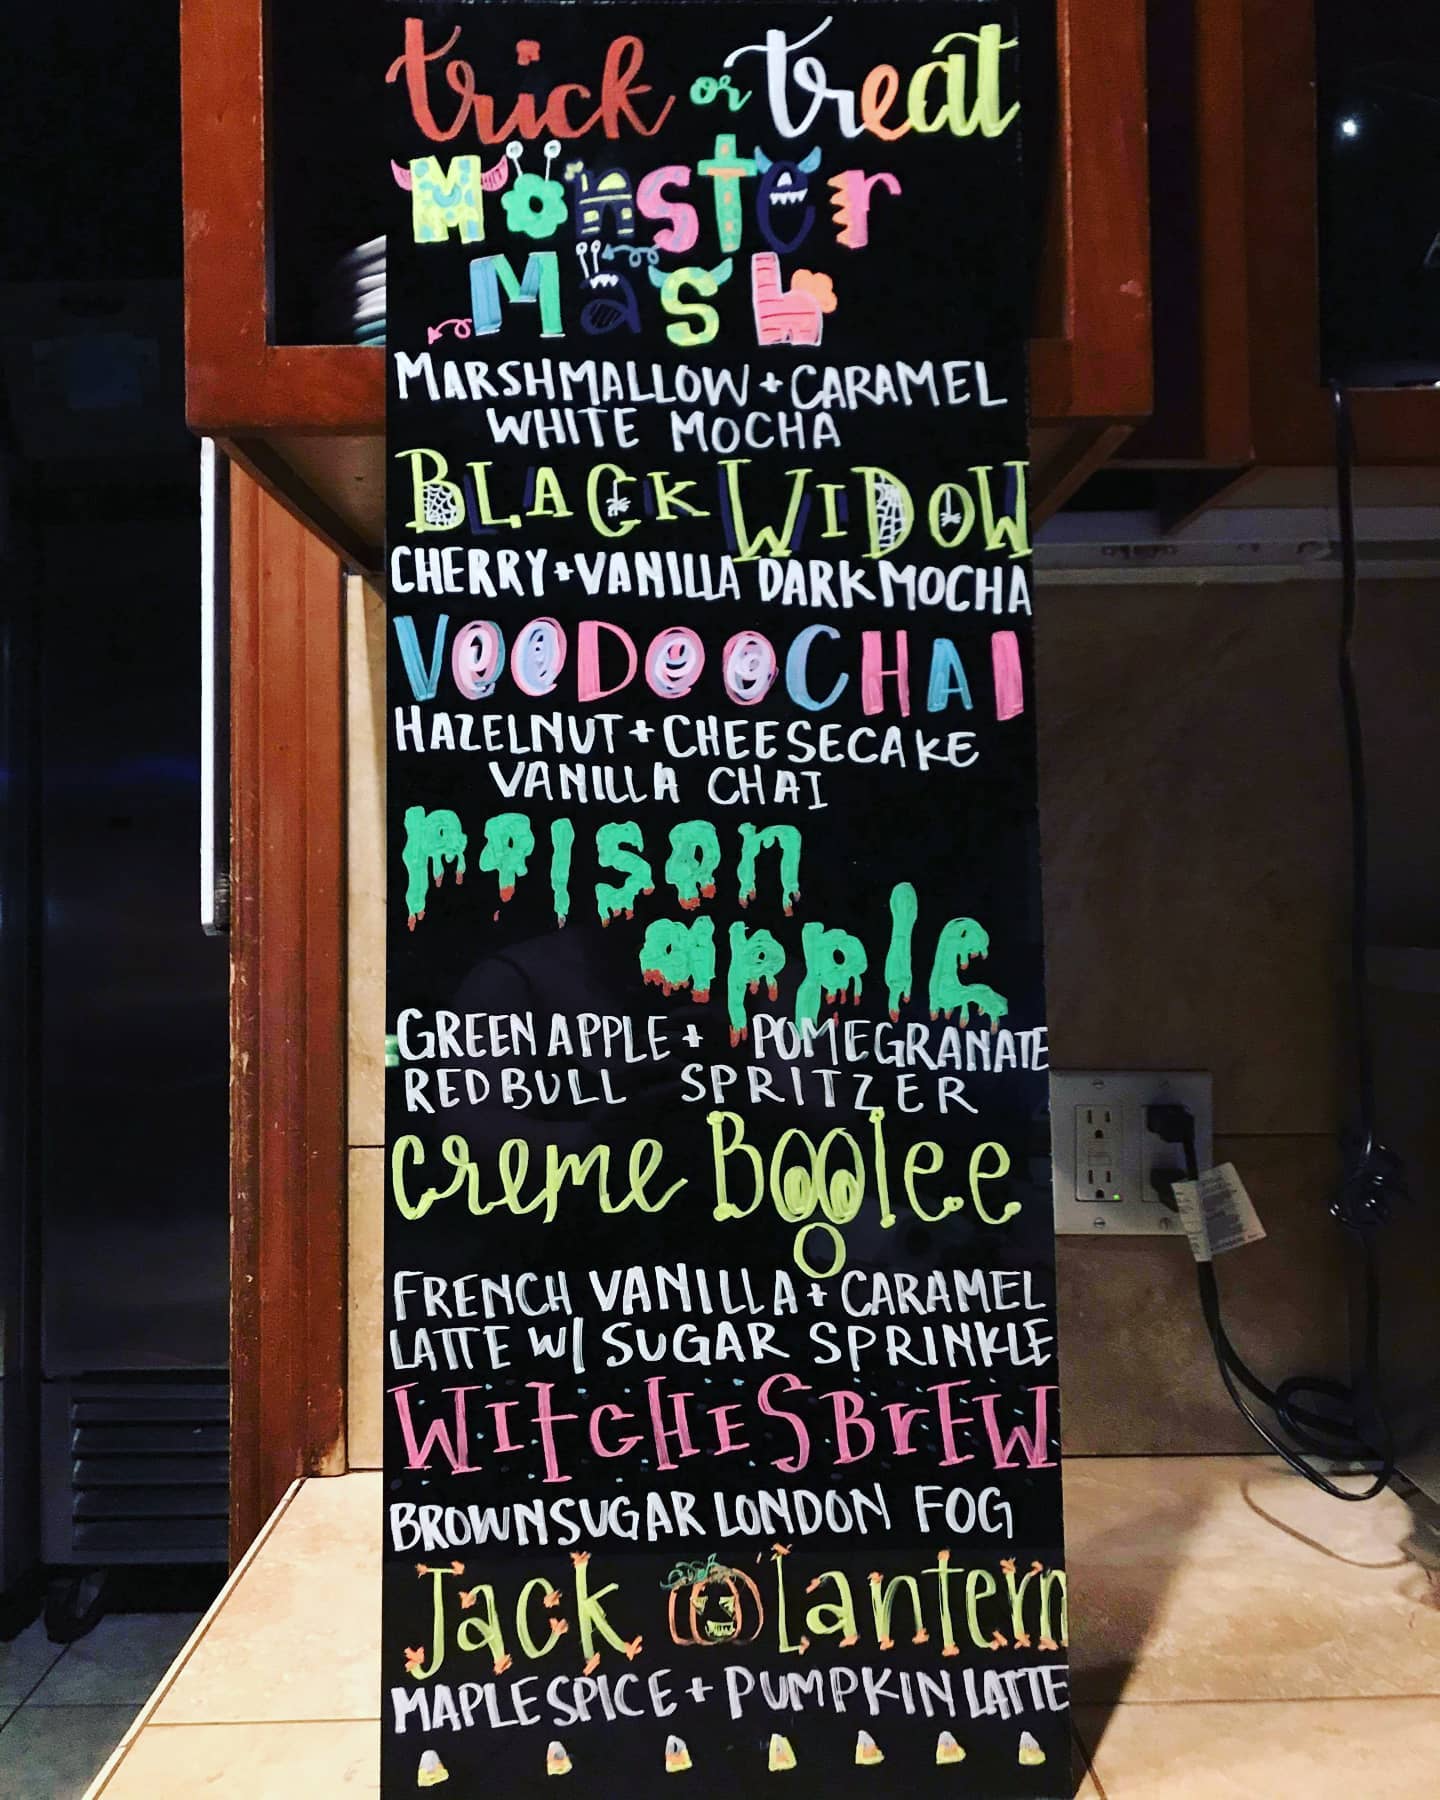 trick or treat
Monster
Mash
MARSHMALLOW + CARAMEL
WHITE MOCHA
BLACK WIDOW
CHERRY + VANILLA DARK MOCHA
VOODOO CHAI
HAZELNUT + CHEESECAKE
VANILLA CHAI
poison
apple
GREEN APPLE + POMEGRANATE
RED BULL SPRITZER
creme Boolee
FRENCH VANILLA + CARAMEL
LATTE W/ SUGAR SPRINKLE
WITCHES BrEW
BROWN SUGAR LONDON FOG
Jack O Lantern
MAPLE SPICE + PUMPKIN LATTE